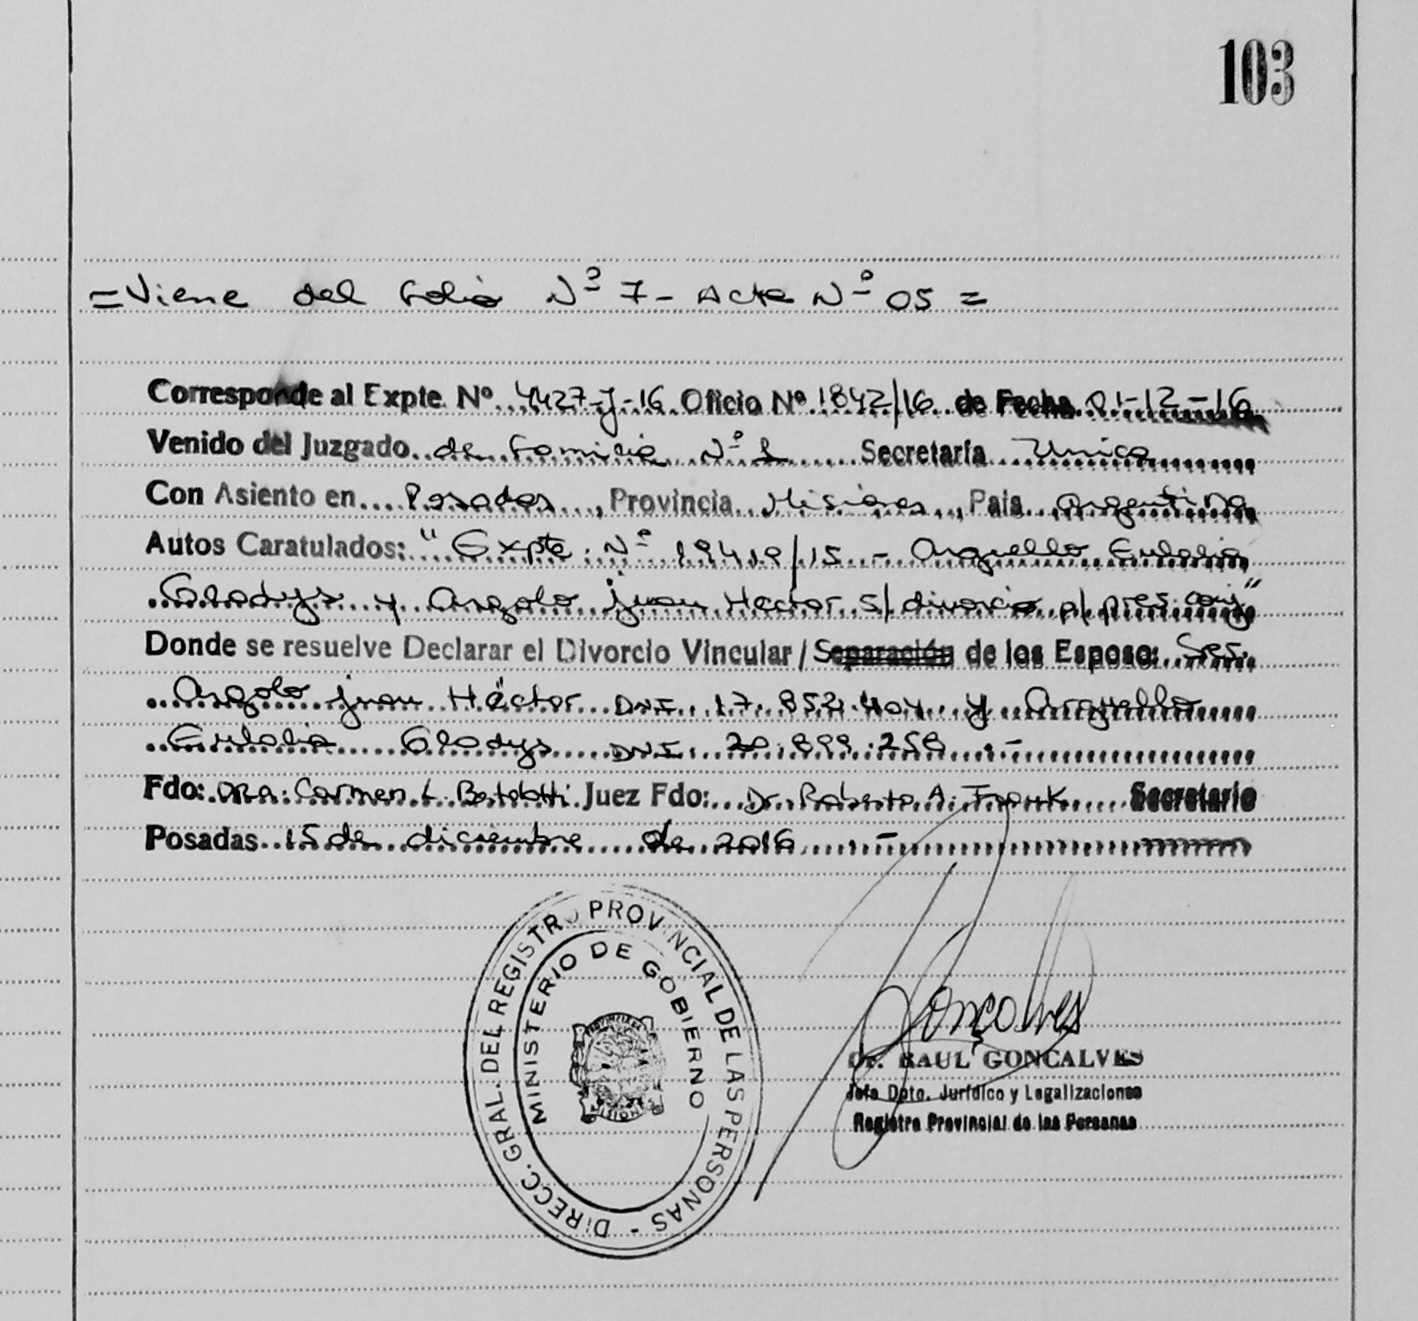 103
= Viene del folio Nº 7 - Acta Nº 05 =
Corresponde al Expte Nº 4427-J-16 Oficio Nº 1842/16 de Fecha 01-12-16
Venido del Juzgado de Familia Nº 1 Secretaría Unica
Con Asiento en Posadas, Provincia Misiones, País Argentina
Autos Caratulados: "Expte. Nº 19419/15 - Arguello Eulalia
Gladys y Angolo Juan Hector s/ divorcio p/ pres. conj"
Donde se resuelve Declarar el Divorcio Vincular / Separación de los Esposo: Sres.
Angolo Juan Héctor DNI. 17.852.404 y Arguello
Eulalia Gladys DNI. 20.899.258 . -
Fdo: Dra. Carmen L. Bertolotti Juez Fdo: Dr. Roberto A. Frank Secretario
Posadas 15 de diciembre de 2016 -
DIRECC. GRAL. DEL REGISTRO PROVINCIAL DE LAS PERSONAS -
MINISTERIO DE GOBIERNO
PROVINCIA DE
MISIONES
Gonçalves
Dr. RAUL GONCALVES
Jefe Dpto. Jurídico y Legalizaciones
Registro Provincial de las Personas